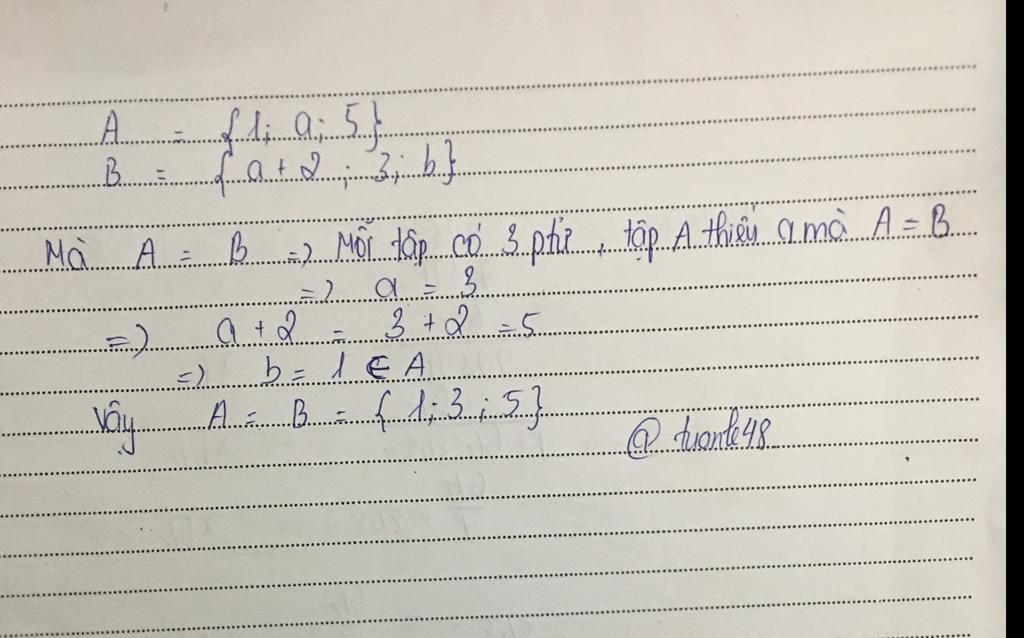 A = {1; a; 5}
B = {a+2; 3; b}
Mà A = B => Mỗi tập có 3 ptử, tập A thiếu a mà A = B
=> a = 3
=> a + 2 = 3 + 2 = 5
=> b = 1 ∈ A
Vậy A = B = {1; 3; 5}
@tuonle48